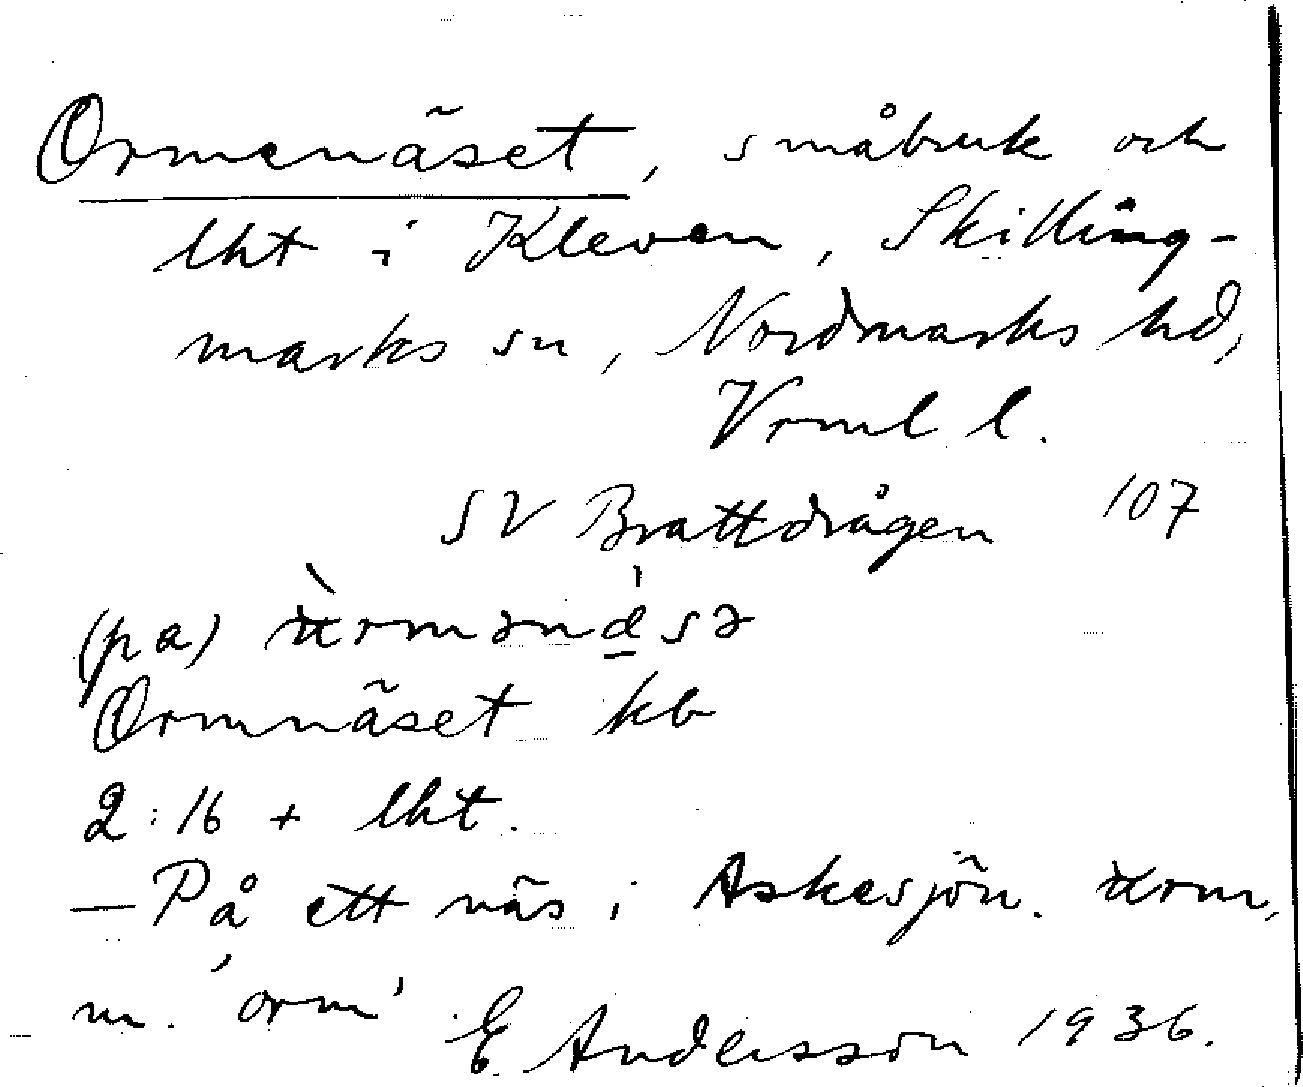 Ormenäset, småbruk och
lht i Kleven, Skilling-
marks sn, Nordmarks hd,
Vrml l.
SV Brattdrågen 107
(pa)
Ormnäset kb
2:16 + lht.
— På ett näs i Askesjön.
m. 'orm' E. Andersson 1936.